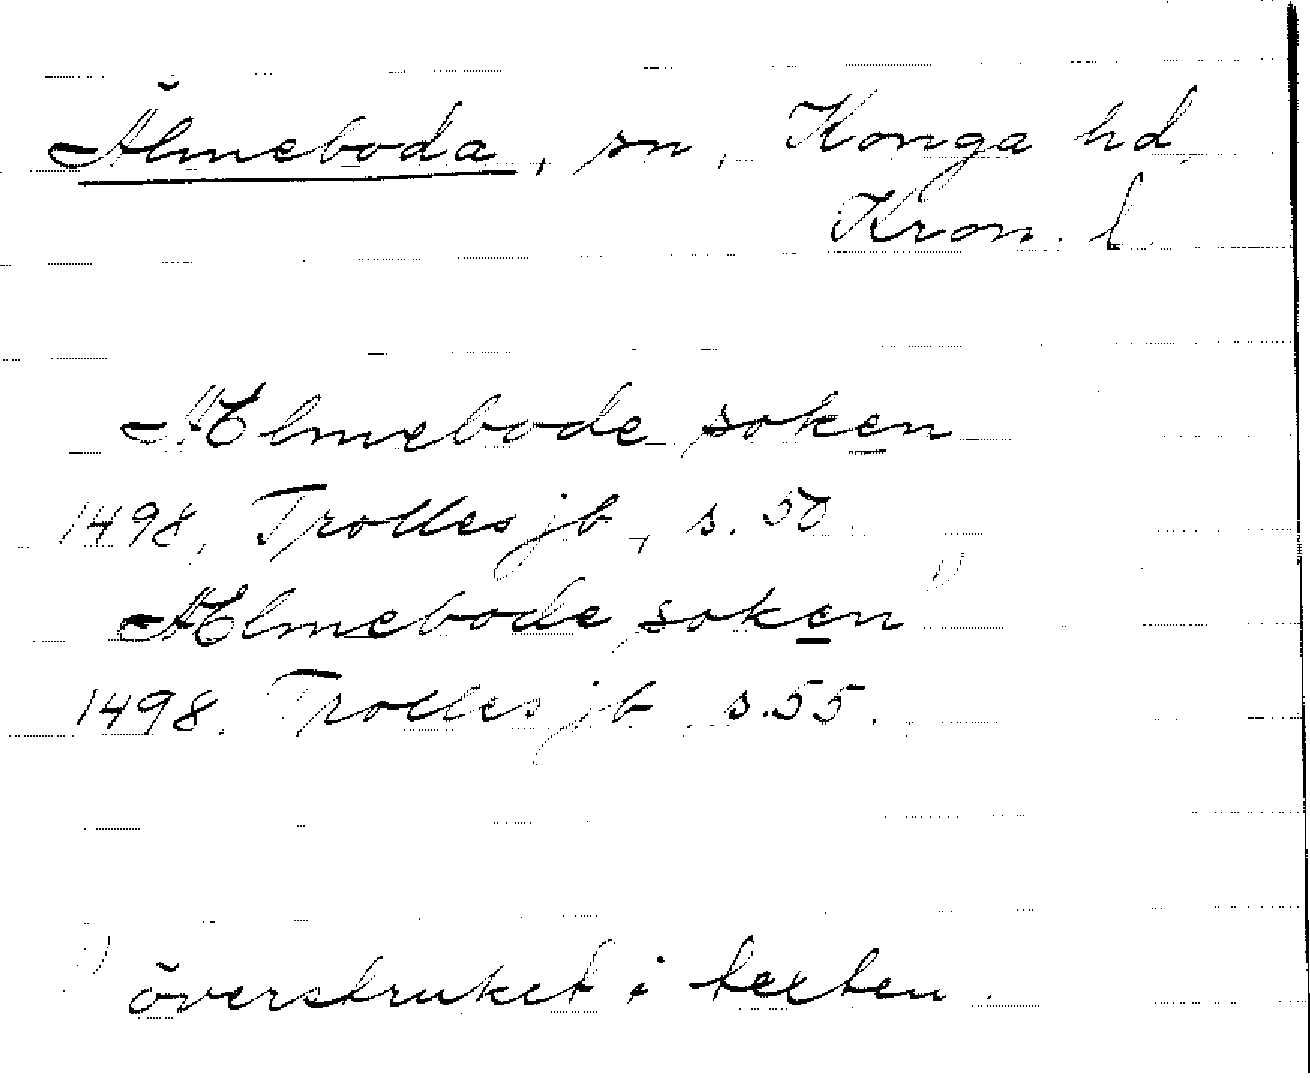 Älmeboda, sn, Konga hd,
Kron. l.
Ælmebode soken
1498, Trolles jb, s. 50.
Ælmebode soken 1)
1498. Trolles jb s. 55.
1) överstruket i texten.